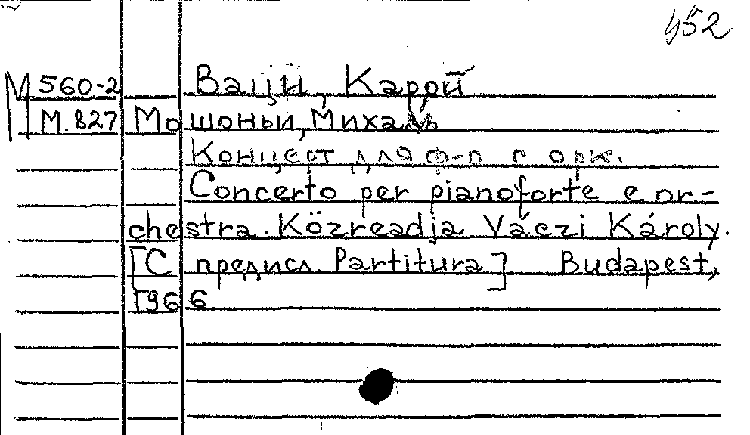 452
М 560-2 Вацы, Карой
М.827 Мошоньи, Михаль
Концерт для ф-п с орк.
Concerto per pianoforte e or-
chestra. Közreadja Váczi Károly.
[С предисл. Partitura] Budapest,
1966